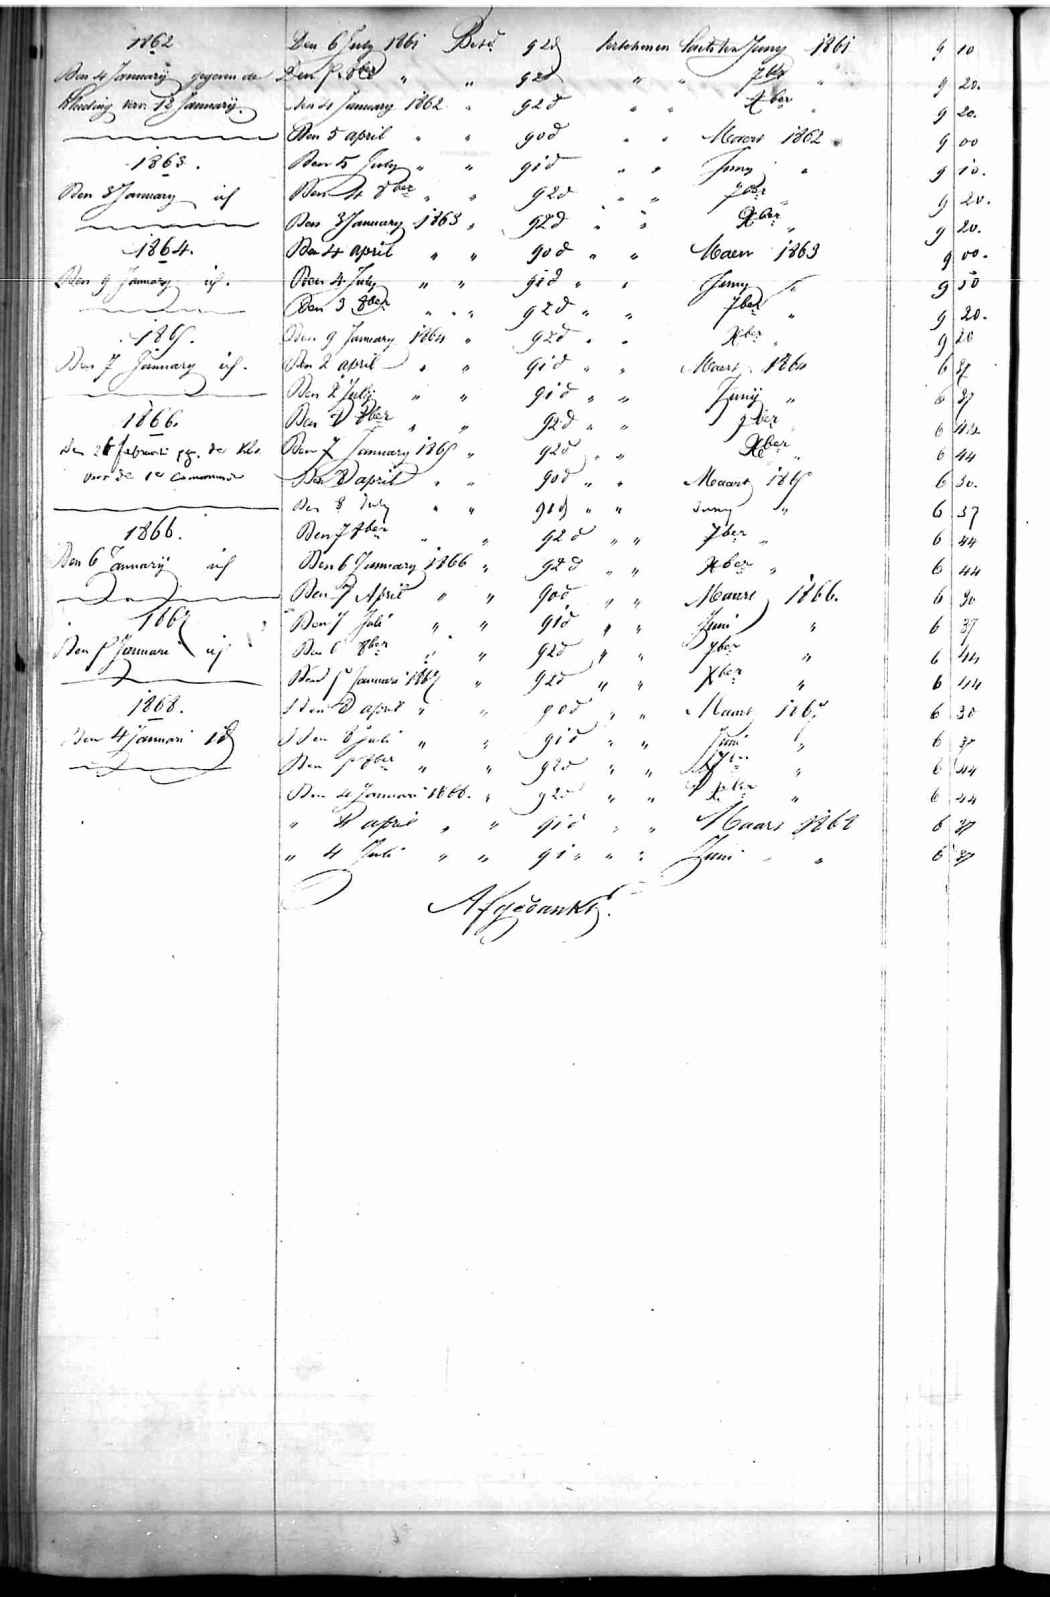 1862
Den 4 January gegeven de
kleeding van 12 January
1863.
Den 3 January id
1864.
Den 9 January id.
1865.
Den 7 January id.
1866.
Den 26 februari de kl.
voor de 1e communie
1866.
Den 6 Januarij id
1867
Den 5 Januari id
1868.
Den 4 Januari id
Den 6 July 1861 Betd 92d verschenen laatsten Juny 1861 9 10
Den 5 8ber " " 92d " " 7ber " 9 20.
den 4 January 1862 " 92d " " Xber " 9 20.
Den 5 april " " 90d " " Maart 1862 9 00
Den 5 July " " 91d " " Juny " 9 10.
Den 4 8ber " " 92d " " 7ber " 9 20.
Den 3 January 1863 " 92d " " Xber " 9 20.
Den 4 april " " 90d " " Maart 1863 9 00.
Den 4 July " " 91d " " Juny " 9 10
Den 3 8ber " " 92d " " 7ber " 9 20.
Den 9 January 1864 " 92d " " Xber " 9 20
Den 2 april " " 91d " " Maart 1864 6 37
Den 2 July " " 91d " " Junij " 6 37
Den 8ber " " 92d " " 7ber " 6 44
Den 7 January 1865 " 92d " " Xber " 6 44
Den 8 april " " 90d " " Maart 1865 6 30.
Den 8 July " " 91d " " Juny " 6 37
Den 7 8ber " " 92d " " 7ber " 6 44
Den 6 January 1866 " 92d " " Xber " 6 44
Den 7 April " " 90d " " Maart 1866. 6 30
Den 7 Juli " " 91d " " Juni " 6 37
Den 6 8ber " " 92d " " 7ber " 6 44
Den 5 Januari 1867 " 92d " " Xber " 6 44
Den april " " 90d " " Maart 1867 6 30
Den 6 Juli " " 91d " " Juni " 6 37
Den 5 8ber " " 92d " " 7ber " 6 44
Den 4 Januari 1868. " 92d " " Xber " 6 44
" 4 april " " 91d " " Maart 1868 6 37
" 4 Juli " " 91 " " " Juni " " 6 37
Afgedankt.